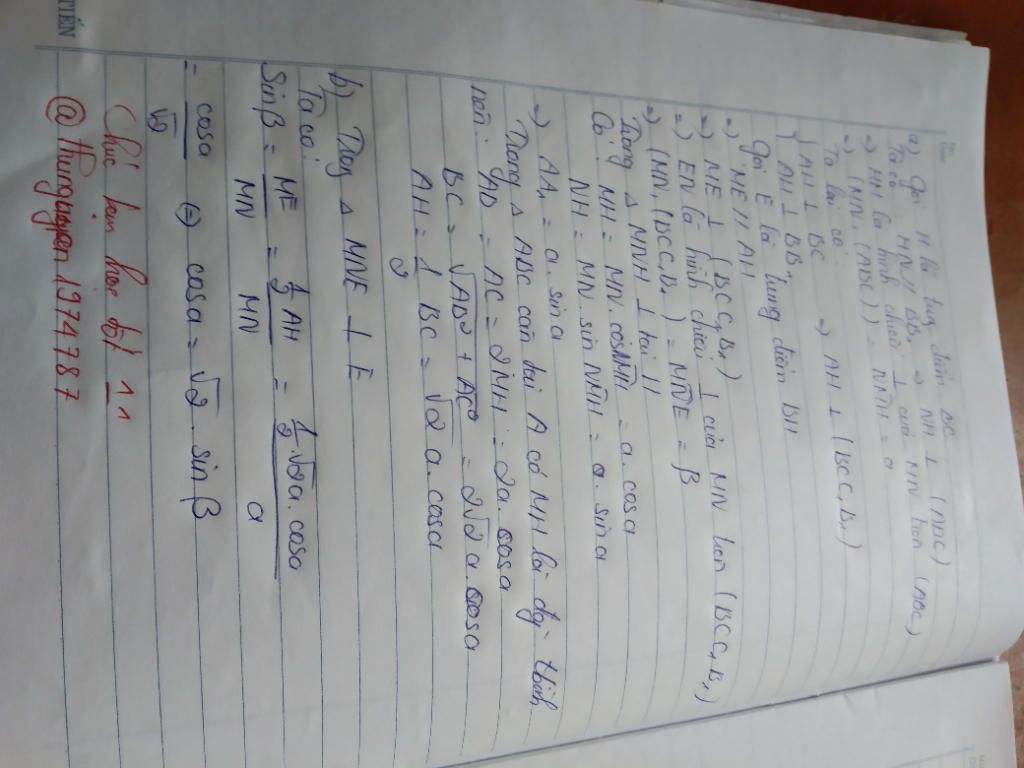 a) Gọi H là trung điểm BC
Ta có HN // BB₁ ⇒ NH ⊥ (ABC)
⇒ HM là hình chiếu ⊥ của MN trên (ABC)
⇒ (MN, (ABC)) = NMH = α
Ta lại có:
{ AH ⊥ BC
AH ⊥ BB₁ ⇒ AH ⊥ (BCC₁B₁)
Gọi E là trung điểm BH
⇒ ME // AH
⇒ ME ⊥ (BCC₁B₁)
⇒ EN là hình chiếu ⊥ của MN trên (BCC₁B₁)
⇒ (MN, (BCC₁B₁) = MNE = β
Trong Δ MNH ⊥ tại H
Có: MH = MN. cosNMH = a. cosα
NH = MN. sin NMH = a. sinα
⇒ AA₁ = a. sinα
Trong Δ ABC cân tại A có MH là đg` tbình
nên: AB = AC = 2MH = 2a. cosα
BC = √AB² + AC² = 2√2 a. cosα
AH = 1/2 BC = √2 a. cosα
b) Trog Δ MNE ⊥ E
Ta có:
Sinβ = ME/MN = 1/2 AH/MN = 1/2.√2a. cosα/a
= cosα/√2 ⇔ cosα = √2. sinβ
Chúc bạn học tốt
@Thungnguyen1974787
TIẾN